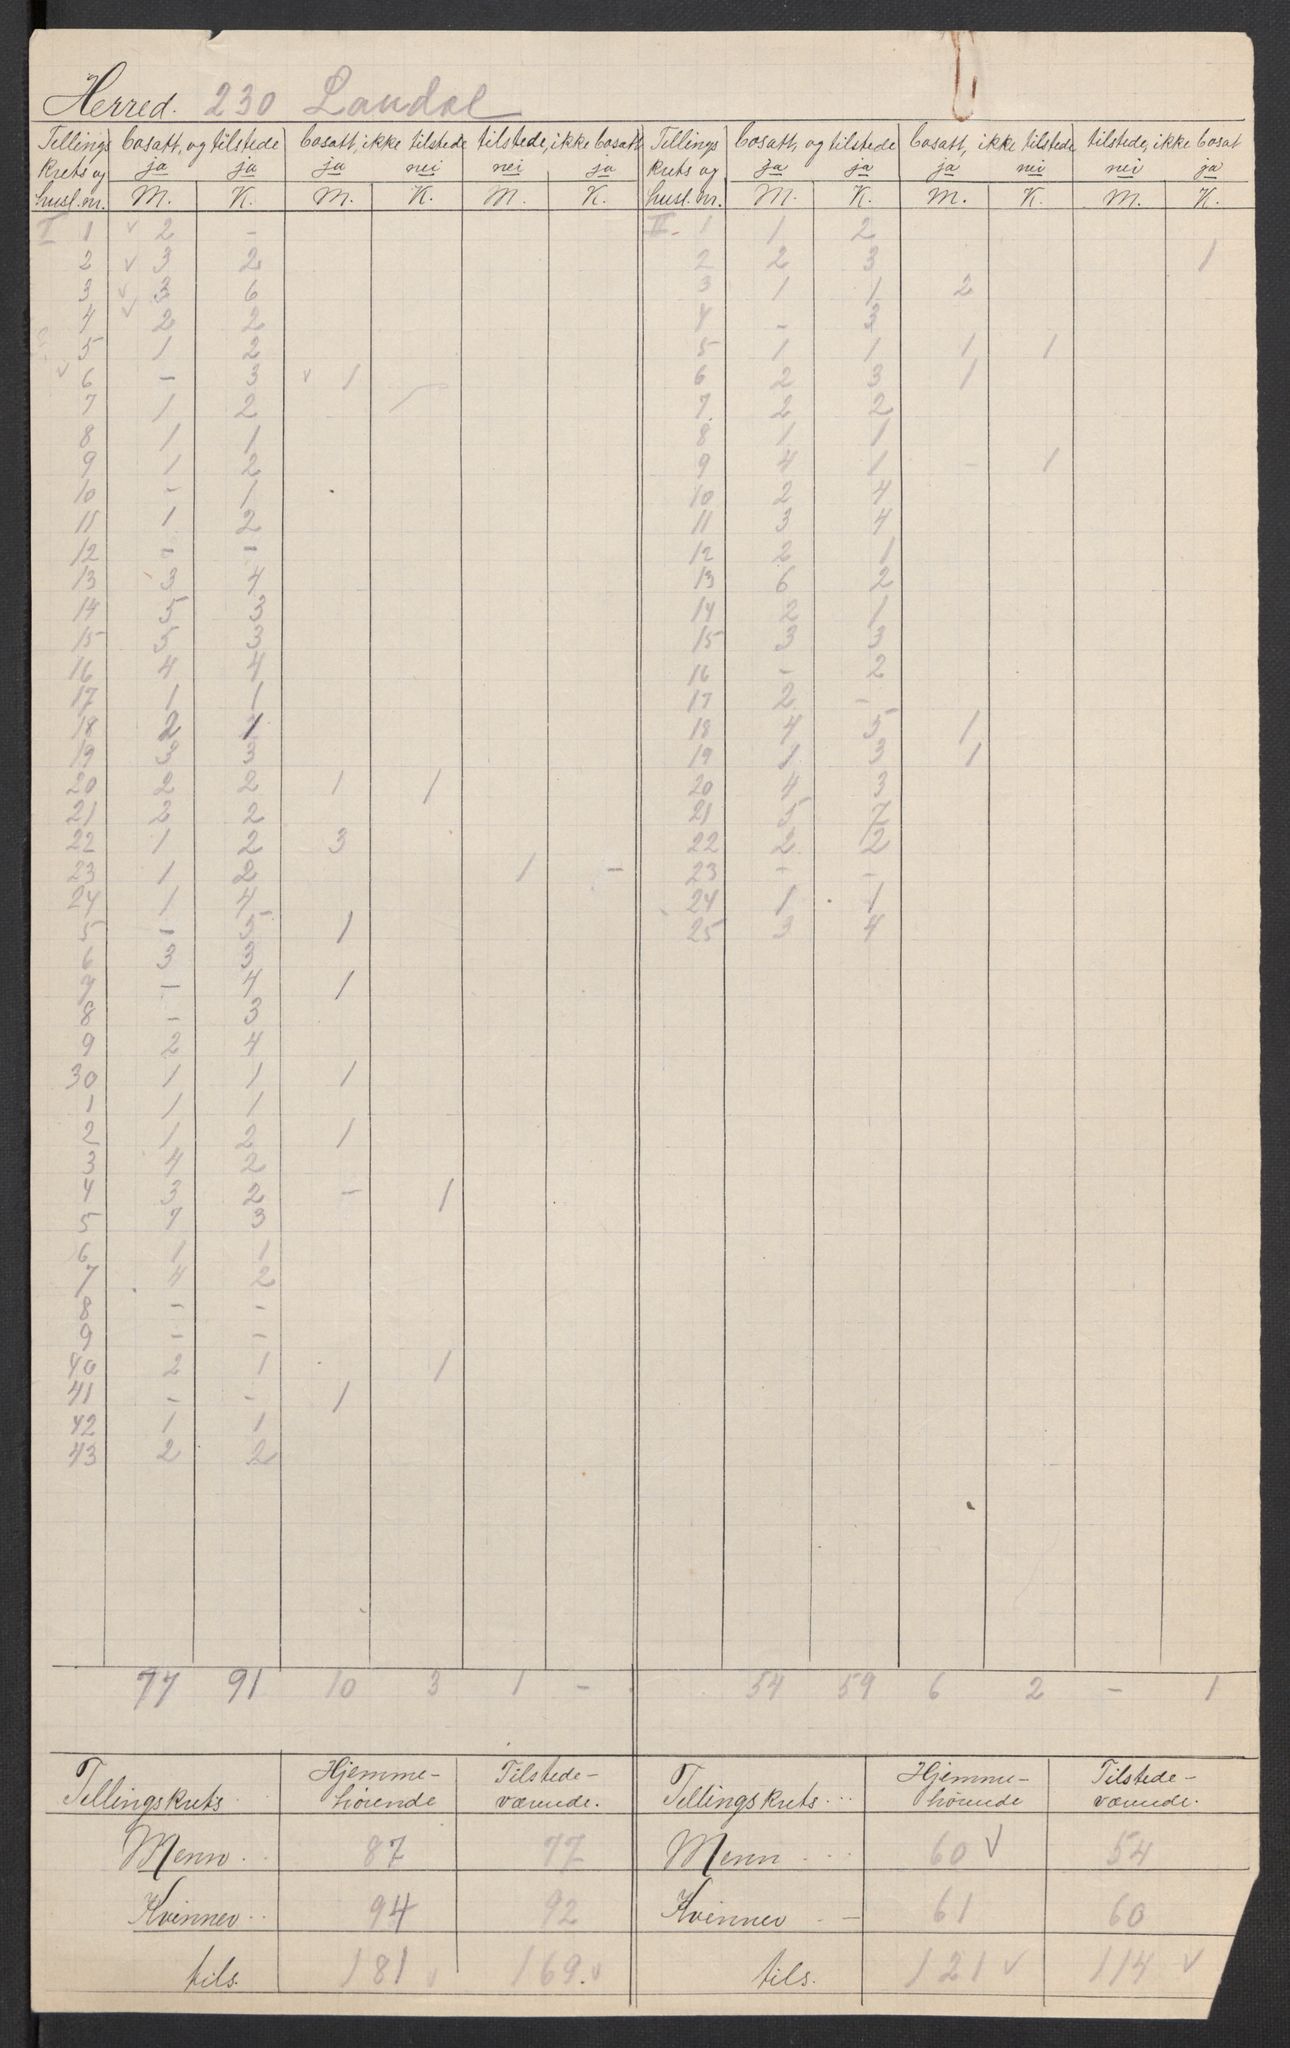 Herred. 230 Laudal
Tellings krets og husl. nr. | bosatt, og tilstede | bosatt, ikke tilstede | tilstede, ikke bosatt | Tellings krets og husl. nr. | bosatt, og tilstede | bosatt, ikke tilstede | tilstede, ikke bosat
ja ja ja nei nei ja ja ja ja nei nei ja
M. K. M. K. M. K. M. K. M. K. M. K.
I 1 √ 2 - | II. 1 1 2
2 √ 3 2 | 2 2 3 1
3 √ 3 6 | 3 1 1 2
4 √ 2 2 | 4 - 3
5 1 2 | 5 1 1 1 1
√ 6 - 3 √ 1 | 6 2 3 1
7 1 2 | 7 2 2
8 1 1 | 8 1 1
9 1 2 | 9 4 1 - 1
10 - 1 | 10 2 4
11 1 2 | 11 3 4
12 - - | 12 2 1
13 3 4 | 13 6 2
14 5 3 | 14 2 1
15 5 3 | 15 3 3
16 4 4 | 16 - 2
17 1 1 | 17 2 -
18 2 1 | 18 4 5 1
19 3 3 | 19 1 3 1
20 2 2 1 1 | 20 4 3
21 2 2 | 21 5 7
22 1 2 3 | 22 2 2
23 1 2 1 - | 23 - -
24 1 4 | 24 1 1
5 - 5 1 | 25 3 4
6 3 3
7 - 4 1
8 - 3
9 2 4
30 1 1 1
1 1 1
2 1 2 1
3 4 2
4 3 2 - 1
5 7 3
6 1 1
7 4 2
8 - -
9 - -
40 2 1 1
41 - - 1
42 1 1
43 2 2
77 91 10 3 1 - | 54 59 6 2 - 1
Tellingskrets. | Hjemme-hörende | Tilstede-værende. | Tellingskrets... | Hjemme-hörende | Tilstede-værende.
Menn.. 87 77 | Menn... 60 √ 54
Kvinner.. 94 92 | Kvinner.- 61 60
tils. 181 √ 169. √ | tils. 121 √ 114 √